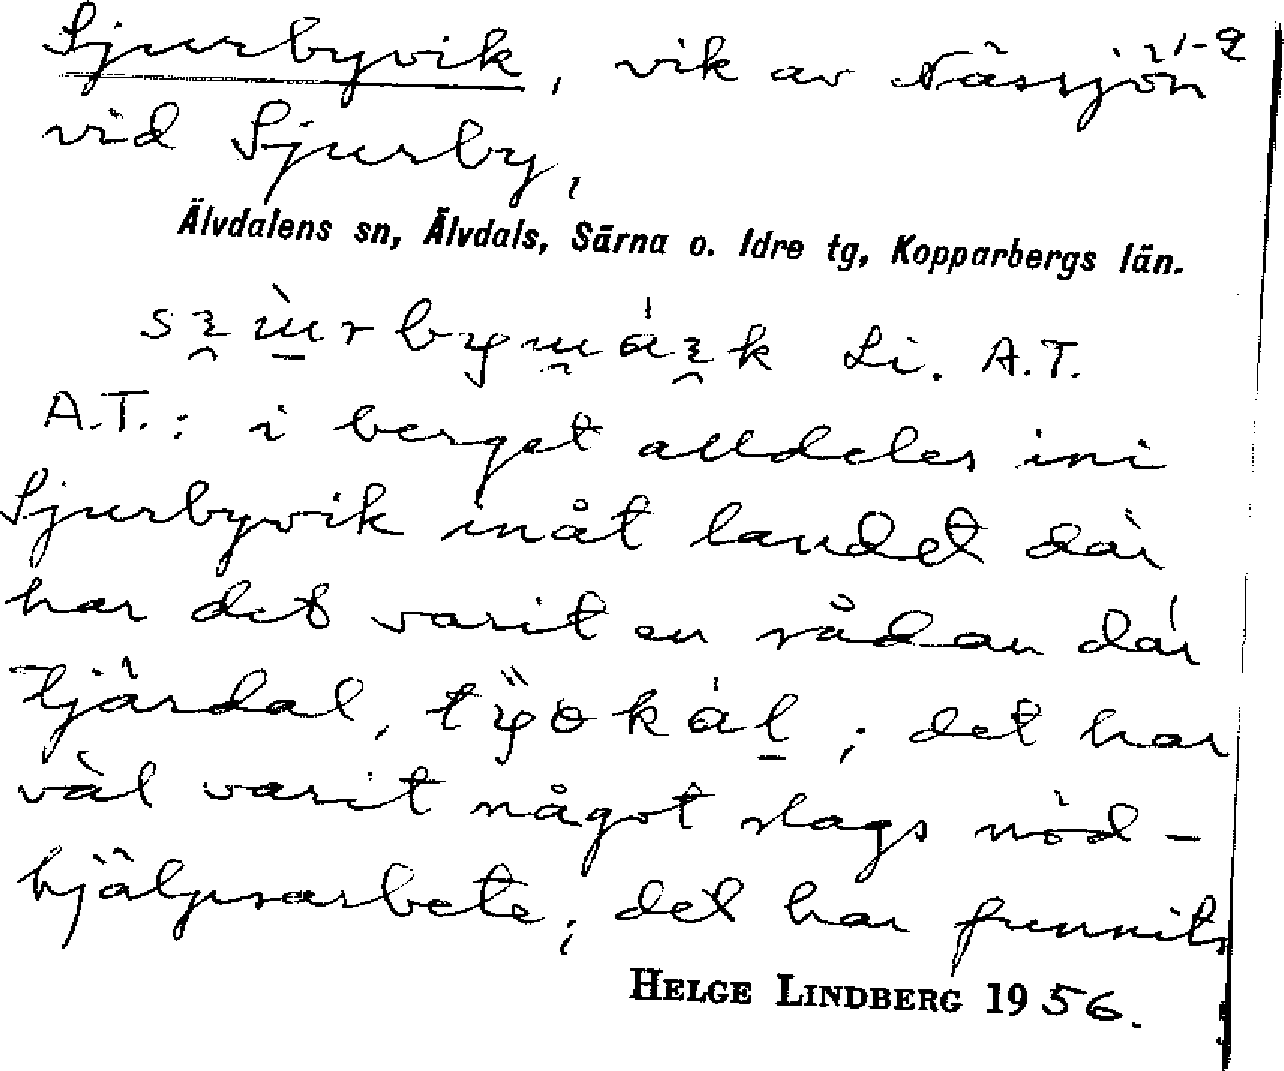 Sjurbyvik, vik av Nässjön 1-2
vid Sjurby,
Älvdalens sn, Älvdals, Särna o. Idre tg, Kopparbergs län.
Li. A.T.
A.T.: i berget alldeles ini
Sjurbyvik inåt landet där
har det varit en sådan där
tjärdal, ; det har
väl varit något slags nöd-
hjälpsarbete; det har funnits
HELGE LINDBERG 1956.